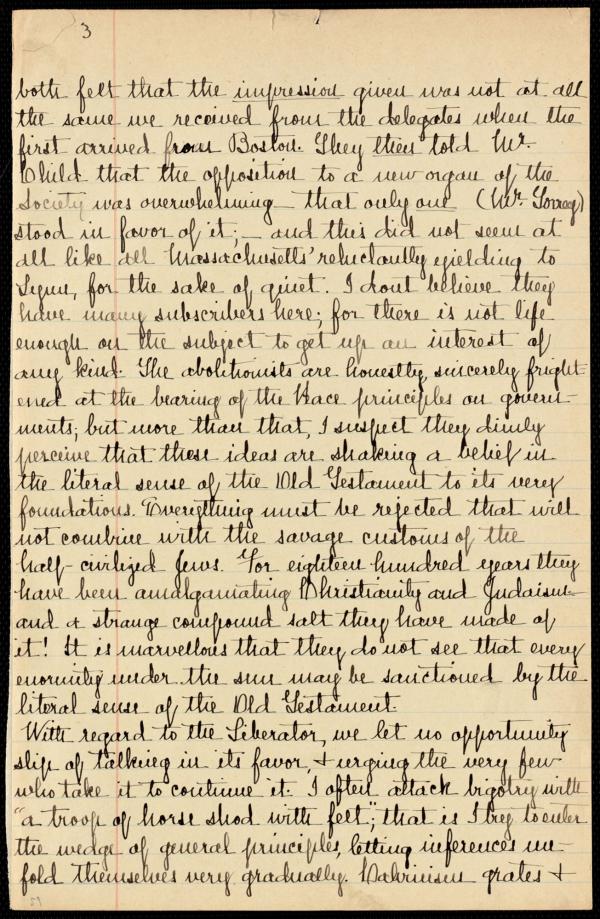 3
both felt that the impression given was not at all
the same we received from the delegates when the
first arrived from Boston. They then told Mr.
Child that the opposition to a new organ of the
Society was overwhelming - that only one (Mr. Torrey)
stood in favor of it; - and this did not seem at
all like all Massachusetts' reluctantly yielding to
Lynn, for the sake of quiet. I dont believe they
have many subscribers here; for there is not life
enough on the subject to get up an interest of
any kind. The abolitionists are honestly, sincerely fright-
ened at the bearing of the Peace principles on govern-
ments; but more than that, I suspect they dimly
perceive that these ideas are shaking a belief in
the literal sense of the Old Testament to its very
foundations. Everything must be rejected that will
not combine with the savage customs of the
half-civilized Jews. For eighteen hundred years they
have been amalgamating Christianity and Judaism -
and a strange compound salt they have made of
it! It is marvellous that they do not see that every
enormity under the sun may be sanctioned by the
literal sense of the Old Testament.
With regard to the Liberator, we let no opportunity
slip of talking in its favor, & urging the very few
who take it to continue it. I often attack bigotry with
"a troop of horse shod with felt"; that is I try to enter
the wedge of general principles, letting inferences un-
fold themselves very gradually. Calvinism grates &